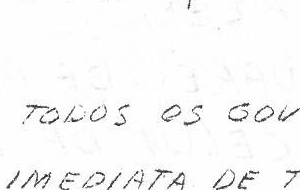 TODOS OS GOV
IMEDIATA DE T